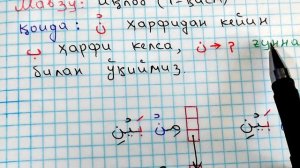 Мавзу: Иқлоб (1-қисм)
Қоида: نْ ҳарфидан кейин
ب ҳарфи келса, ن → م ғунна
билан ўқиймиз.
مِنْ بَيْنِ